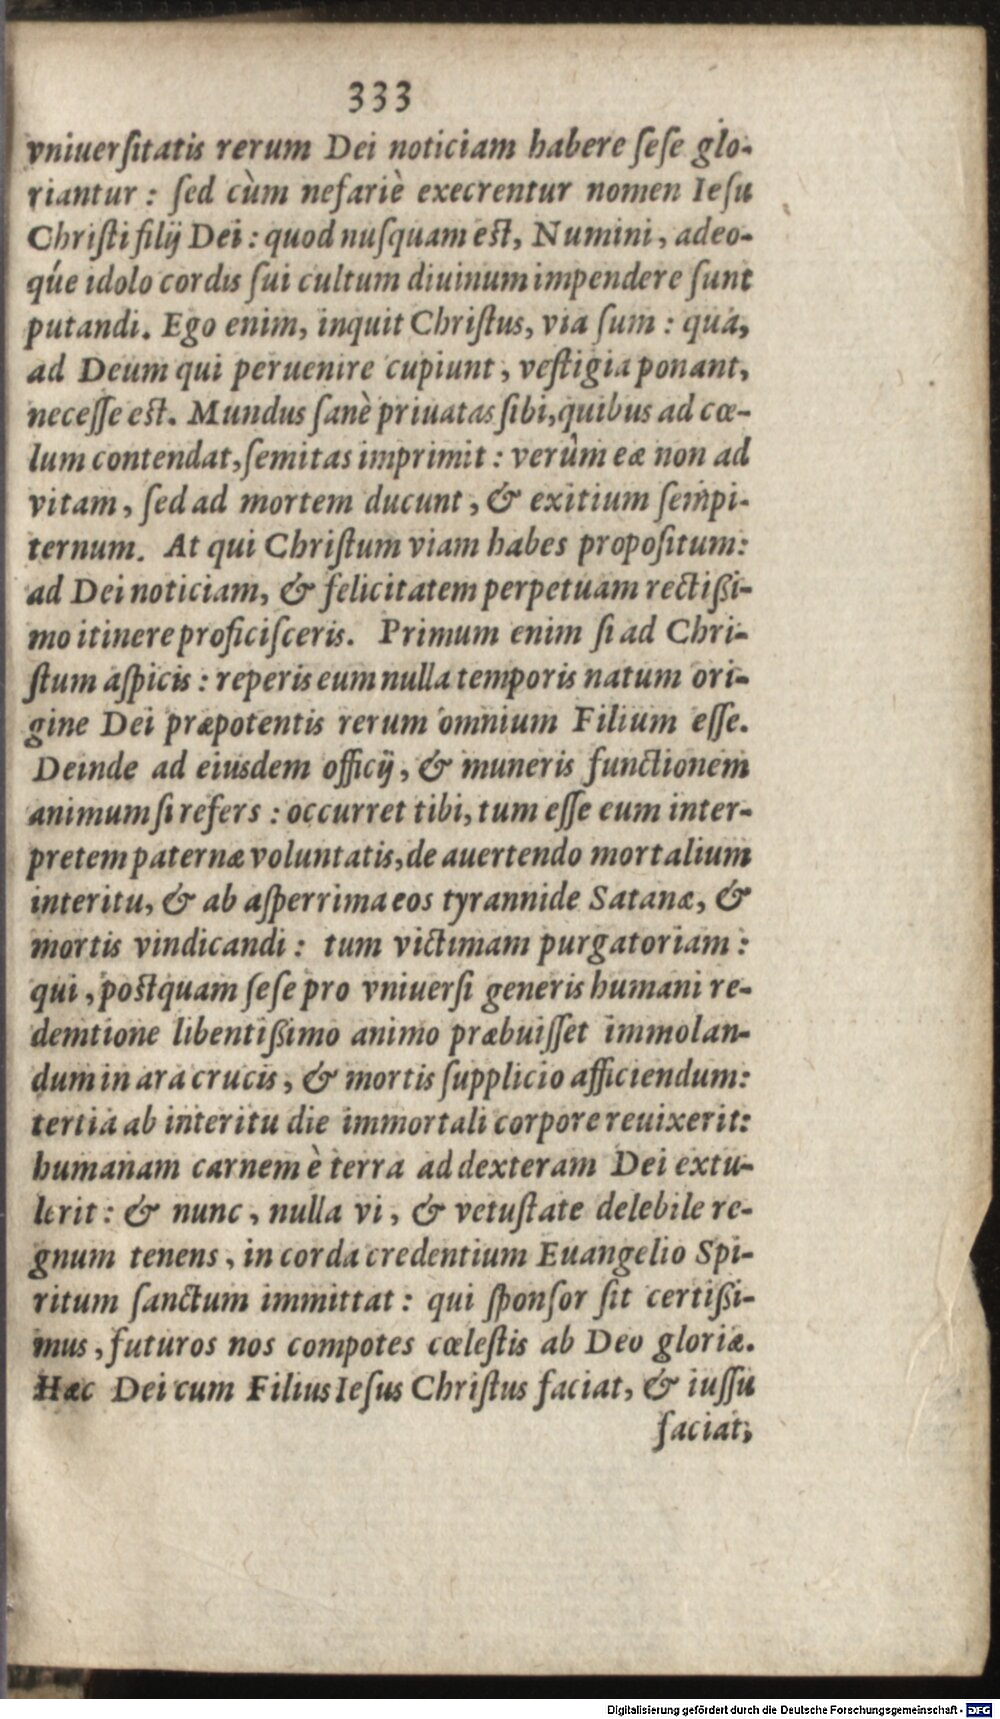 333
vniuerſitatis rerum Dei noticiam habere ſeſe glo-
riantur : ſed cùm nefariè execrentur nomen Ieſu
Chriſti filij Dei : quod nuſquam eſt, Numini, adeo-
q́ue idolo cordis ſui cultum diuinum impendere ſunt
putandi. Ego enim, inquit Chriſtus, via ſum : qua,
ad Deum qui peruenire cupiunt, veſtigia ponant,
neceſſe eſt. Mundus ſanè priuatas ſibi, quibus ad cœ-
lum contendat, ſemitas imprimit : verùm eæ non ad
vitam, ſed ad mortem ducunt, & exitium ſempi-
ternum. At qui Chriſtum viam habes propoſitum:
ad Dei noticiam, & felicitatem perpetuam rectißi-
mo itinere proficiſceris. Primum enim ſi ad Chri-
ſtum aſpicis : reperis eum nulla temporis natum ori-
gine Dei præpotentis rerum omnium Filium eſſe.
Deinde ad eiusdem officij, & muneris functionem
animum ſi refers : occurret tibi, tum eſſe eum inter-
pretem paternæ voluntatis, de auertendo mortalium
interitu, & ab aſperrima eos tyrannide Satanæ, &
mortis vindicandi : tum victimam purgatoriam :
qui, poſtquam ſeſe pro vniuerſi generis humani re-
demtione libentißimo animo præbuiſſet immolan-
dum in ara crucis, & mortis ſupplicio afficiendum:
tertia ab interitu die immortali corpore reuixerit:
humanam carnem è terra ad dexteram Dei extu-
lerit : & nunc, nulla vi, & vetuſtate delebile re-
gnum tenens, in corda credentium Euangelio Spi-
ritum ſanctum immittat : qui ſponſor ſit certißi-
mus, futuros nos compotes cœleſtis ab Deo gloriæ.
Hæc Dei cum Filius Ieſus Chriſtus faciat, & iuſſu
faciat,
Digitalisierung gefördert durch die Deutsche Forschungsgemeinschaft - DFG